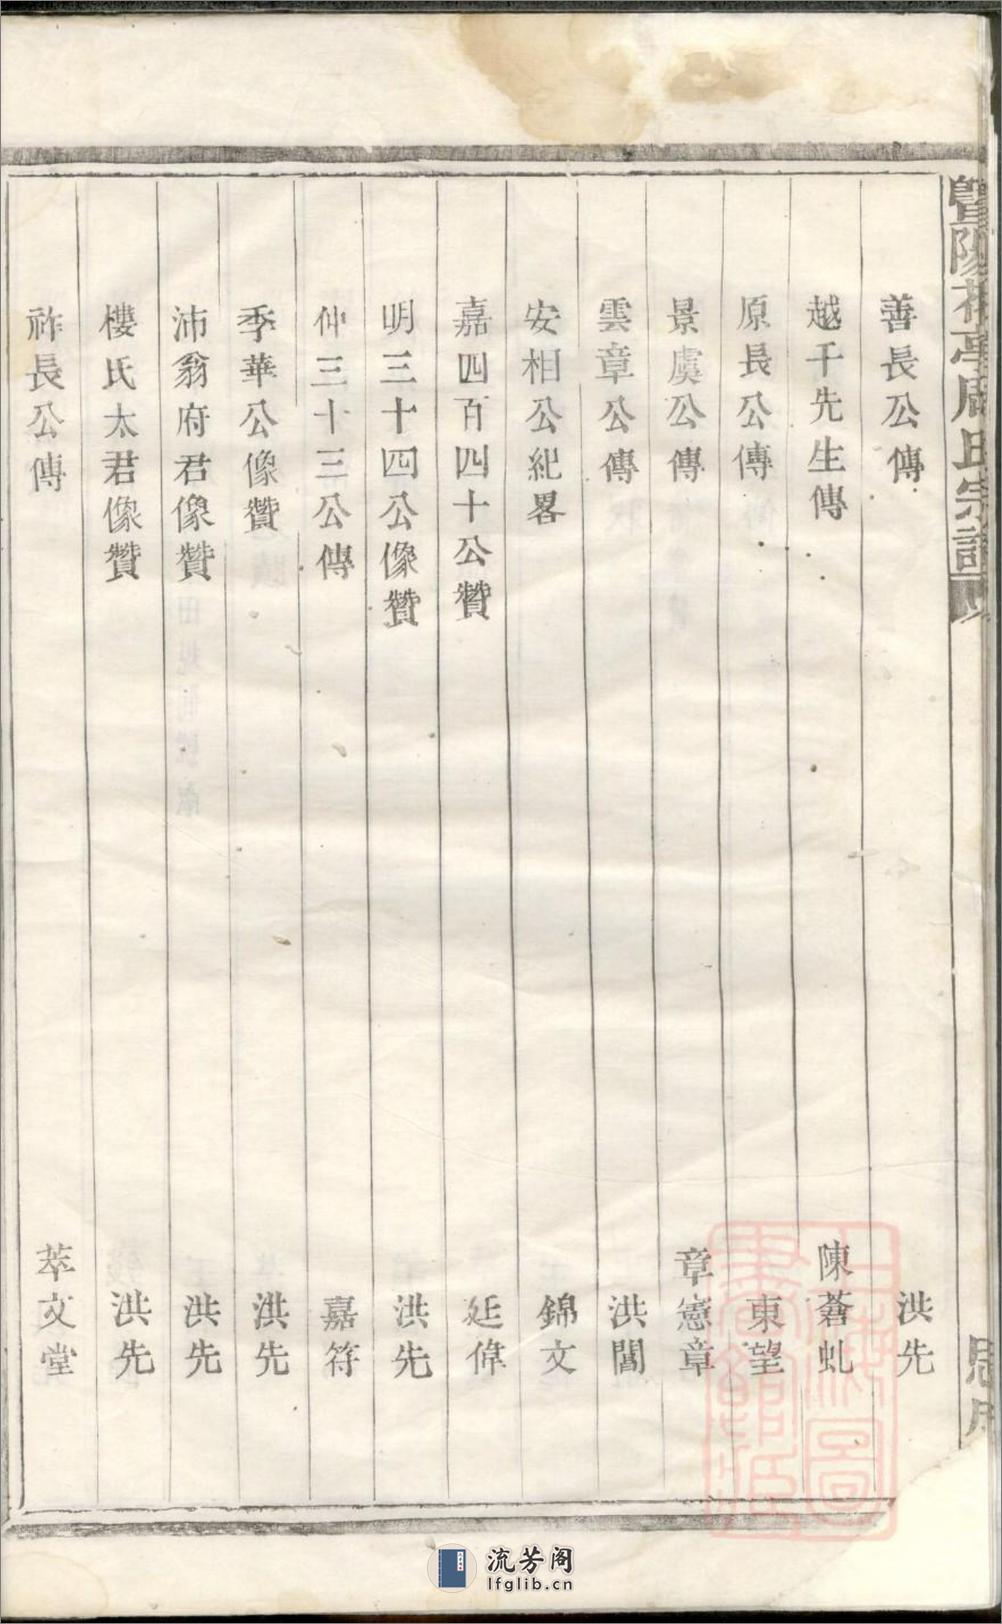 暨陽
周氏宗譜
善長公傳 洪先
越千先生傳 陳蒼虬
原長公傳 東望
景虞公傳 章憲章
雲章公傳 洪闓
安相公紀畧 錦文
嘉四百四十公贊 廷偉
明三十四公像贊 洪先
仲三十三公傳 嘉符
季華公像贊 洪先
沛翁府君像贊 洪先
樓氏太君像贊 洪先
祚長公傳 萃文堂
流芳阁
lfglib.cn